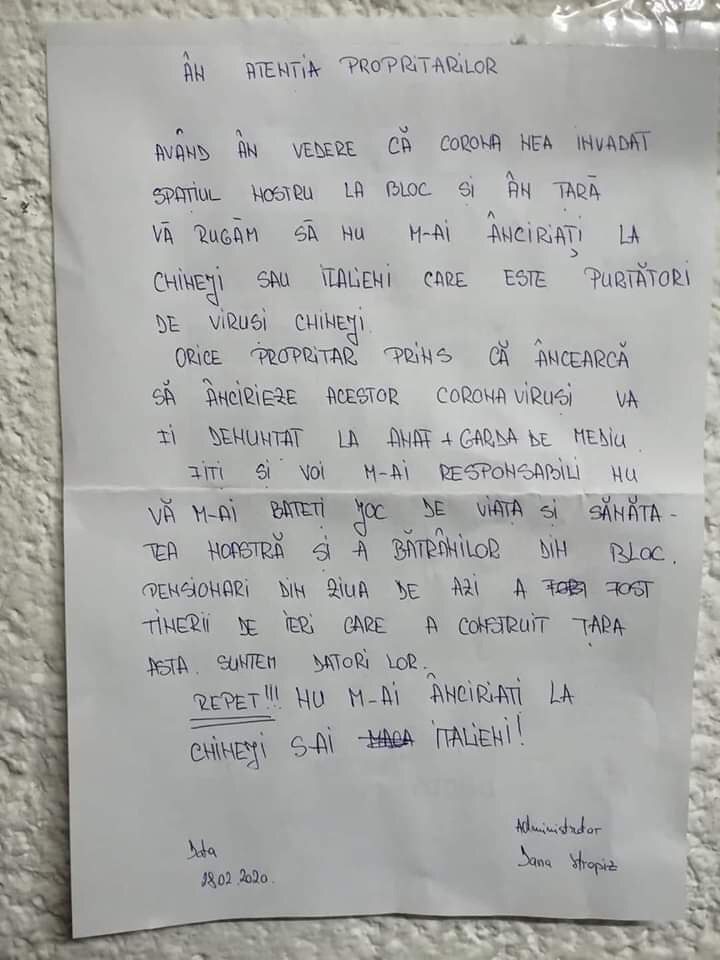 ÂN ATENTIA PROPRITARILOR
AVÂND ÂN VEDERE CĂ CORONA NEA INVADAT
SPAȚIUL NOSTRU LA BLOC ȘI ÂN ȚARĂ
VĂ RUGĂM SĂ NU M-AI ÂNCIRIAȚI LA
CHINEJI SAU ITALIENI CARE ESTE PURTĂTORI
DE VIRUSI CHINEJI.
ORICE PROPRITAR PRINS CĂ ÂNCEARCĂ
SĂ ÂNCIRIEZE ACESTOR CORONA VIRUSI VA
II DENUNTAT LA ANAF + GARDA DE MEDIU.
FITI SI VOI M-AI RESPONSABILI NU
VĂ M-AI BATEȚI JOC DE VIAȚA ȘI SĂNĂTA-
TEA NOASTRĂ ȘI A BĂTRÂNILOR DIN BLOC.
PENSIONARI DIN ZIUA DE AZI A FOST
TINERII DE IERI CARE A CONSTRUIT ȚARA
ASTA. SUNTEM DATORI LOR.
REPET!!! NU M-AI ÂNCIRIATI LA
CHINEJI S-AI ITALIENI!
Administrator
Data
28.02.2020.